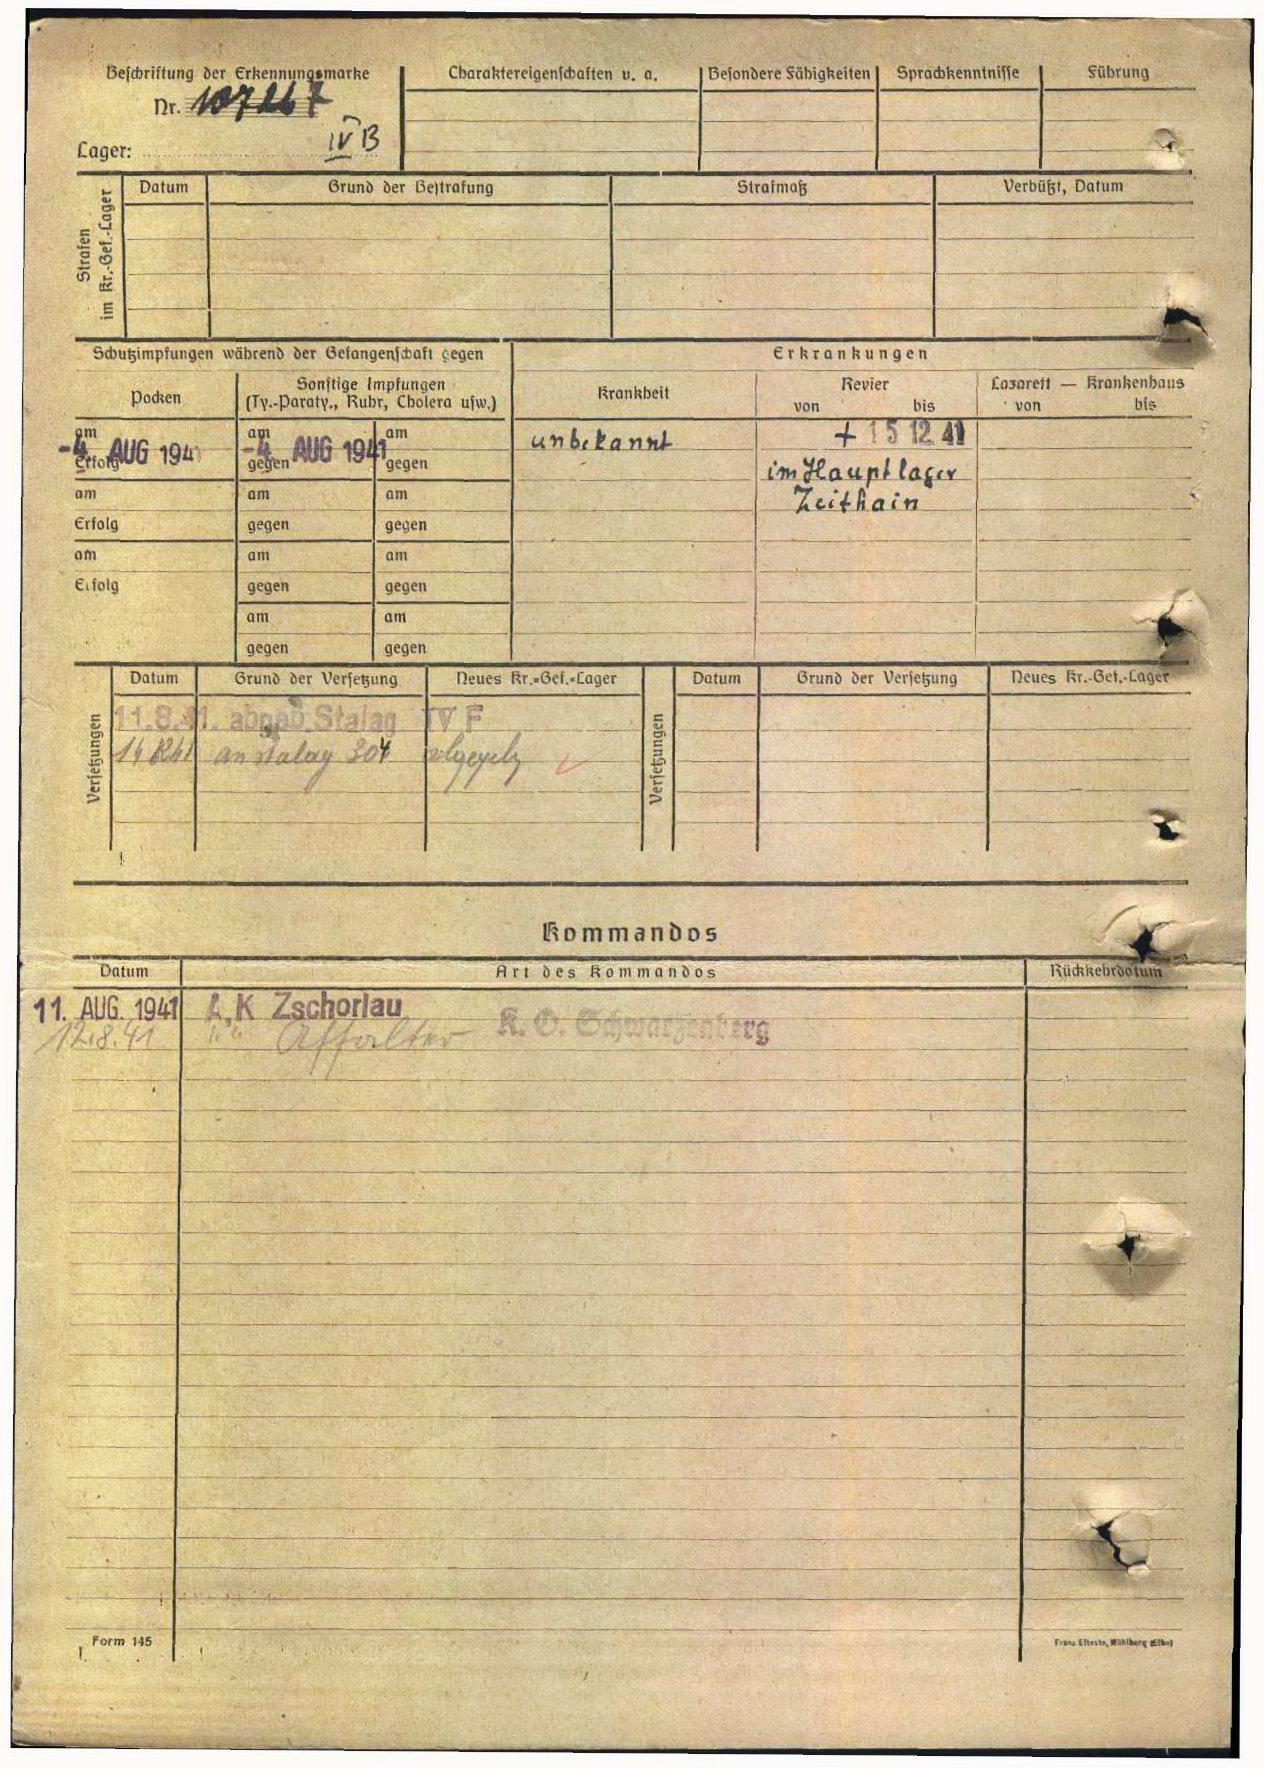 Beschriftung der Erkennungsmarke
Nr. 107267
Lager: IV B
Charaktereigenschaften u. a.
Besondere Fähigkeiten
Sprachkenntnisse
Führung
Strafen im Kr.-Gef.-Lager
Datum
Grund der Bestrafung
Strafmaß
Verbüßt, Datum
Schutzimpfungen während der Gefangenschaft gegen
Erkrankungen
Pocken
Sonstige Impfungen
(Ty.-Paraty., Ruhr, Cholera usw.)
Krankheit
Revier
von bis
Lazarett — Krankenhaus
von bis
am am am
-4. AUG 194 -4. AUG 1941
Erfolg gegen gegen
unbekannt + 15 12. 41
im Hauptlager
Zeithain
am am am
Erfolg gegen gegen
am am am
Erfolg gegen gegen
am am
gegen gegen
Versetzungen
Datum Grund der Versetzung Neues Kr.=Gef.=Lager
11.8.41. abgeb. Stalag IV F
an Stalag 304
Versetzungen
Datum Grund der Versetzung Neues Kr.-Gef.-Lager
Kommandos
Datum Art des Kommandos Rückkehrdatum
11. AUG. 1941 A,K Zschorlau
12.8.41 " " Affalter K. O. Schwarzenberg
Form 145
Mühlberg (Elbe)